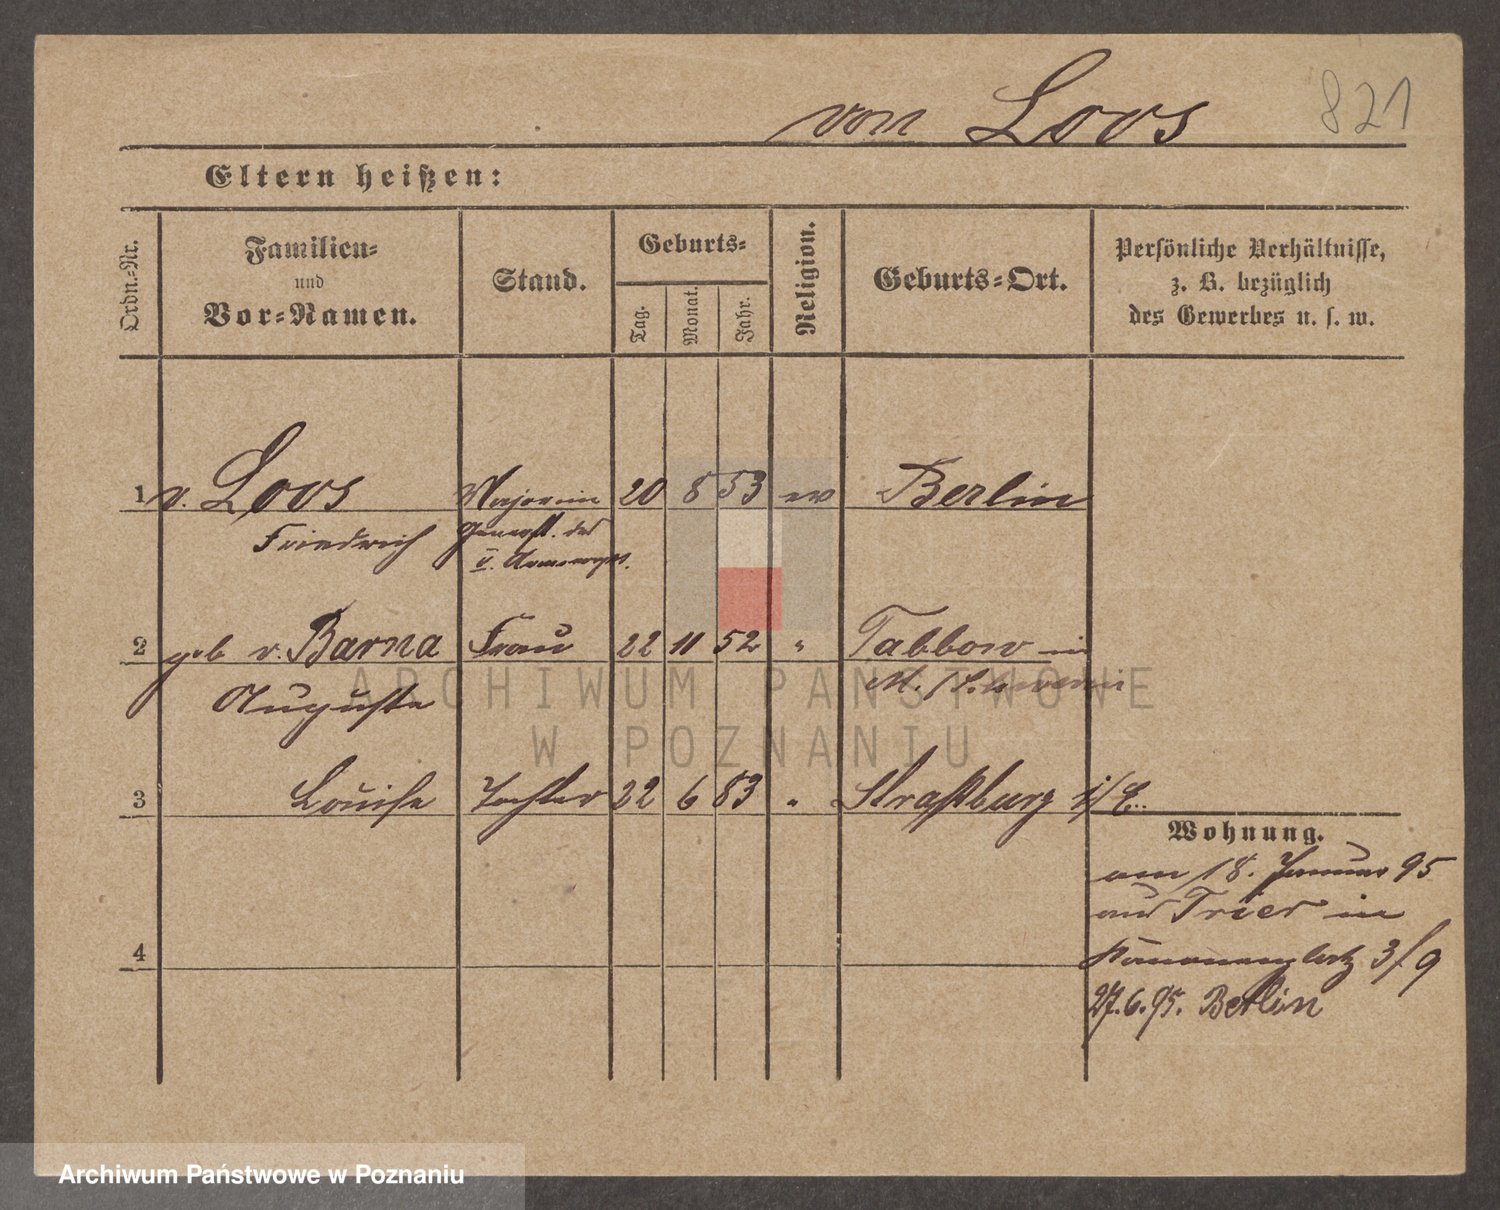 von Loos 821
Eltern heißen:
Ordn.-Nr.
Familien-
und
Vor-Namen.
Stand.
Geburts-
Tag.
Monat.
Jahr.
Religion.
Geburts-Ort.
Persönliche Verhältnisse,
z. B. bezüglich
des Gewerbes u. s. w.
1 v. Loos Major im 20 8 53 ev Berlin
Friedrich Generalst. des
V. Armeecorps.
2 geb v. Barna Frau 22 11 52 " Tabbow in
Auguste M./Schwerin
3 Louise Tochter 22 6 83 " Straßburg i/E.
Wohnung.
am 18. Januar 95
aus Trier in
Kanonenplatz 3/9
4
27.6.95. Berlin
ARCHIWUM PAŃSTWOWE
W POZNANIU
Archiwum Państwowe w Poznaniu